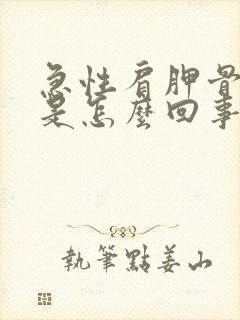 急性肩胛骨
是怎麼回事
執筆點姜山